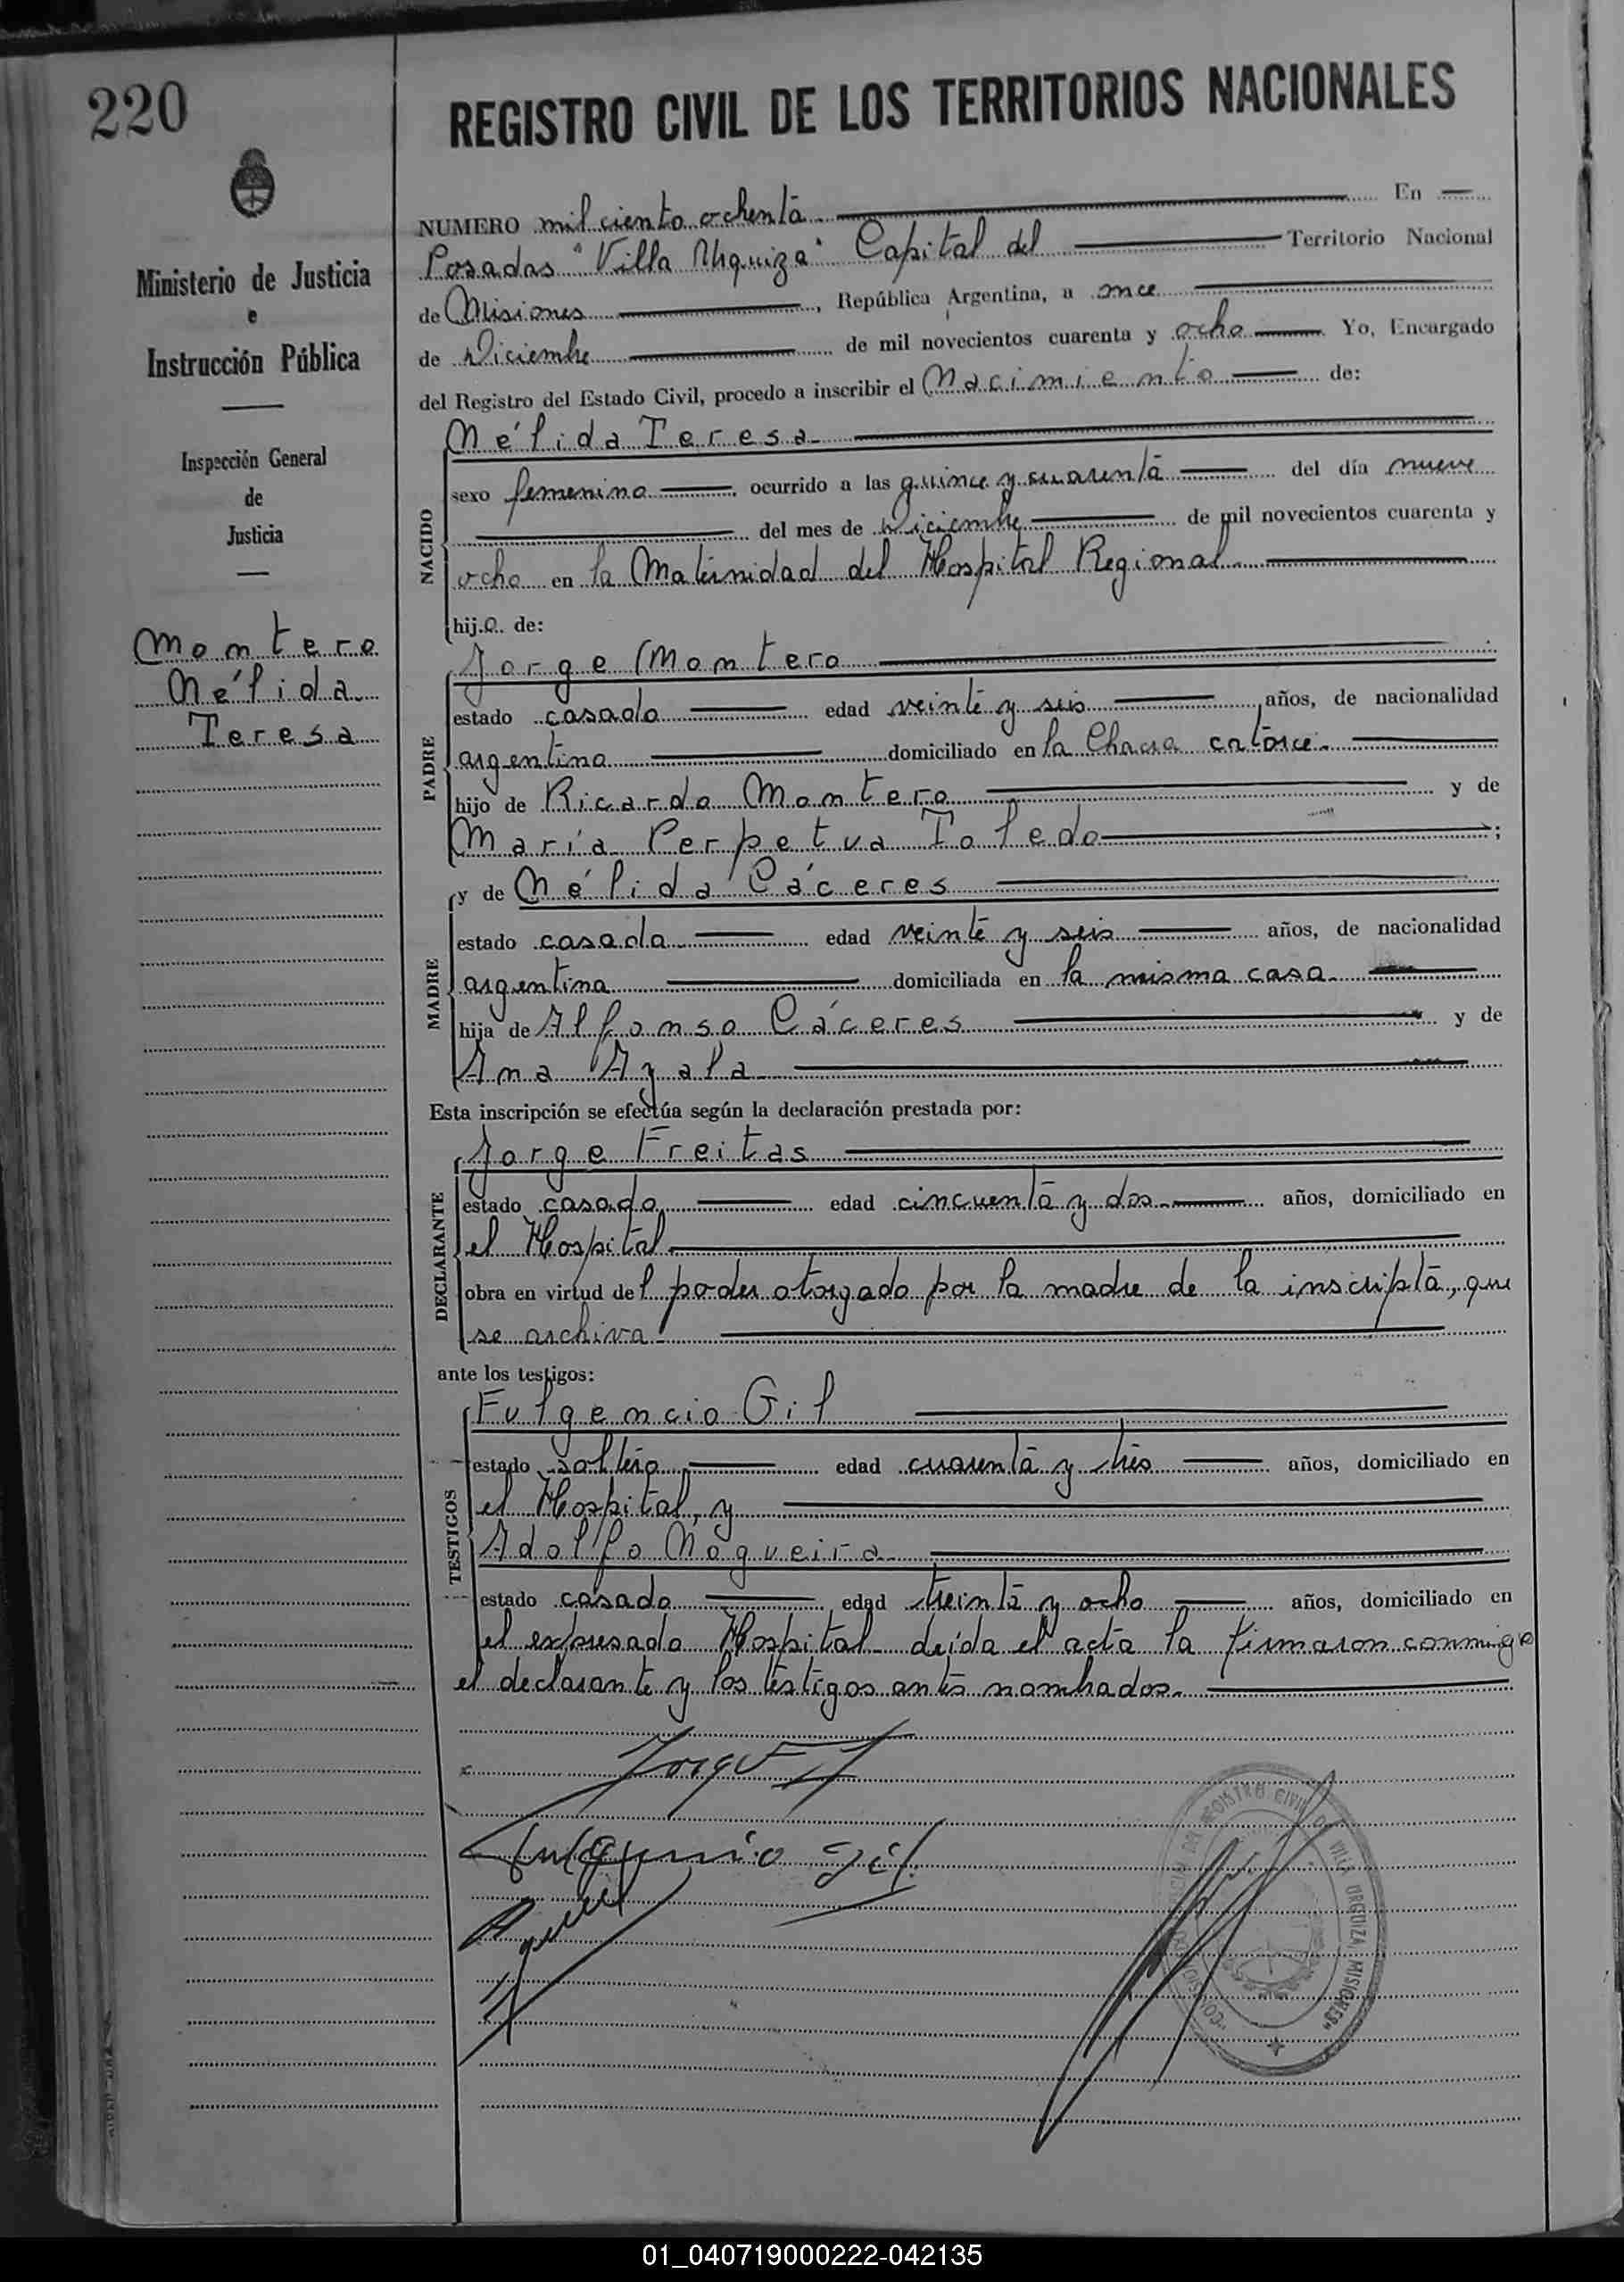 220
REGISTRO CIVIL DE LOS TERRITORIOS NACIONALES
Ministerio de Justicia
e
Instrucción Pública
Inspección General
de
Justicia
Montero
Nélida
Teresa
NUMERO mil ciento ochenta En
Posadas "Villa Urquiza" Capital del Territorio Nacional
de Misiones, República Argentina, a once
de Diciembre de mil novecientos cuarenta y ocho Yo, Encargado
del Registro del Estado Civil, procedo a inscribir el Nacimiento de:
NACIDO
Nélida Teresa
sexo femenino ocurrido a las quince y cuarenta del día nueve
del mes de Diciembre de mil novecientos cuarenta y
ocho en la Maternidad del Hospital Regional
hija de:
PADRE
Jorge Montero
estado casado edad veinte y seis años, de nacionalidad
argentina domiciliado en la Chacra catorce
hijo de Ricardo Montero y de
María Perpetua Toledo;
MADRE
y de Nélida Cáceres
estado casada edad veinte y seis años, de nacionalidad
argentina domiciliada en la misma casa
hija de Alfonso Cáceres y de
Ana Ayala
Esta inscripción se efectúa según la declaración prestada por:
DECLARANTE
Jorge Freitas
estado casado edad cincuenta y dos años, domiciliado en
el Hospital
obra en virtud del poder otorgado por la madre de la inscripta, que
se archiva
ante los testigos:
TESTIGOS
Fulgencio Gil
estado soltero edad cuarenta y tres años, domiciliado en
el Hospital, y
Adolfo Nogueira
estado casado edad treinta y ocho años, domiciliado en
el expresado Hospital leída el acta la firmaron conmigo
el declarante y los testigos antes nombrados.
Jorge F
Fulgencio Gil
REGISTRO CIVIL DE VILLA URQUIZA. MISIONES"
01_040719000222-042135